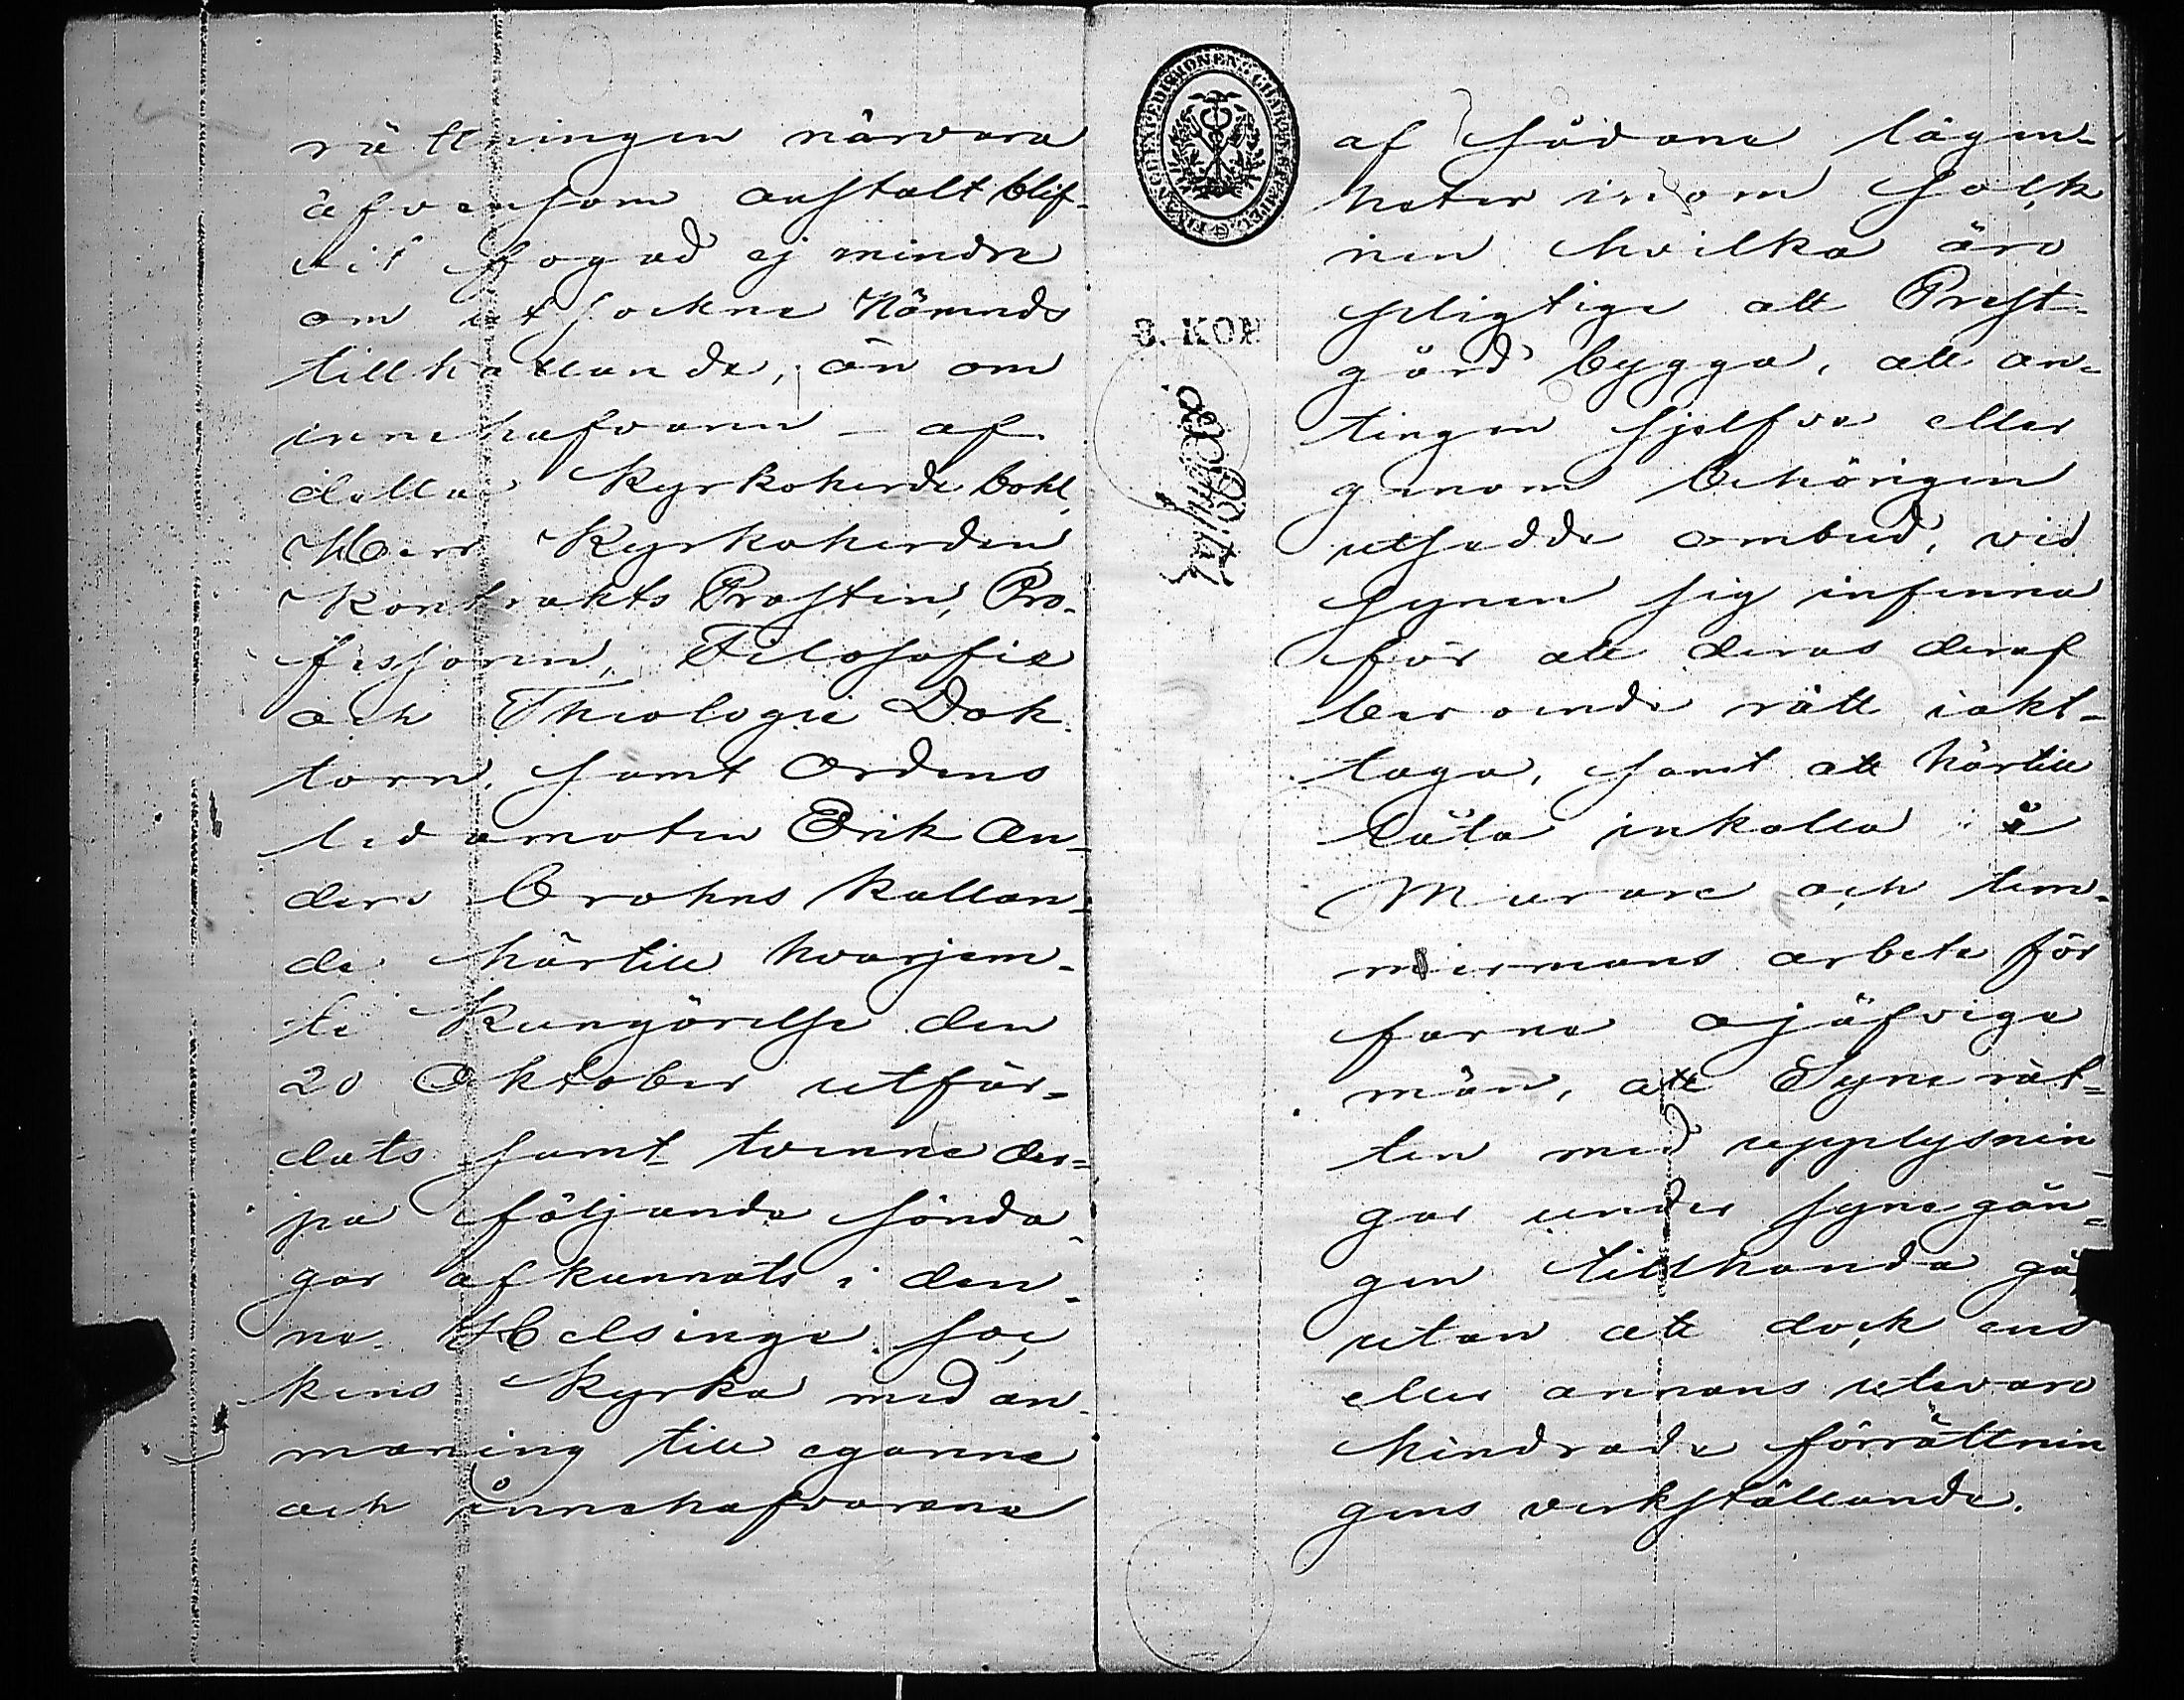 rättningen närvara
äfvensom anstalt blif-
vit fogad ej mindre
om et sockne Nämnds
tillkallande, än om
innehafvaren – af
detta Kyrkoherde bohl,
Herr Kyrkoherden
Kontrakts Prosten, Pro-
fessoren, Filosofie
och Theologie Dok-
torn, samt Ordens
ledamoten Erik An-
ders Crohns kallan-
de härtill hvarjem-
te Kungörelse den
20 Oktober utfär-
dats samt tvenne der-
på följande sönda-
gar afkunnats i den-
na Helsinge soc
kens Kyrka med an-
maning till egarne
och innehafvarene
FINANCE EXPEDITIONEN
3. KOP
af sådane lägen-
heter inom sock
nen hvilka äro
pligtige att Prest-
gård bygga, att an-
tingen sjelfve eller
genom behörigen
utsedde ombud, vid
synen sig infinna
för att deras deraf
beroende rätt iakt-
taga, samt att härtill
låta inkalla i
Murare och tim-
mermans arbete för
farne ojäfvige
män, att Syne rät-
ten med upplysnin
gar under synegån-
gen tillhanda gå,
utan att dock ens
eller annans utevaro
hindrade förrättnin
gens verkställande.